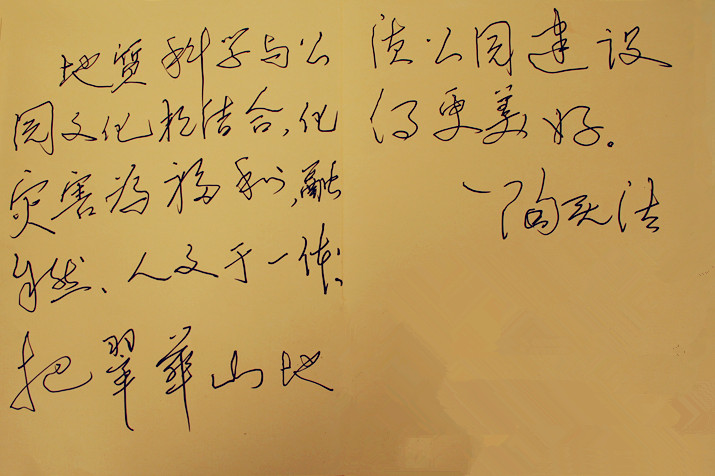 地质科学与公
园文化相结合,化
灾害为福利,融
自然、人文于一体。
把翠华山地
质公园建设
得更美好。
陶庆法